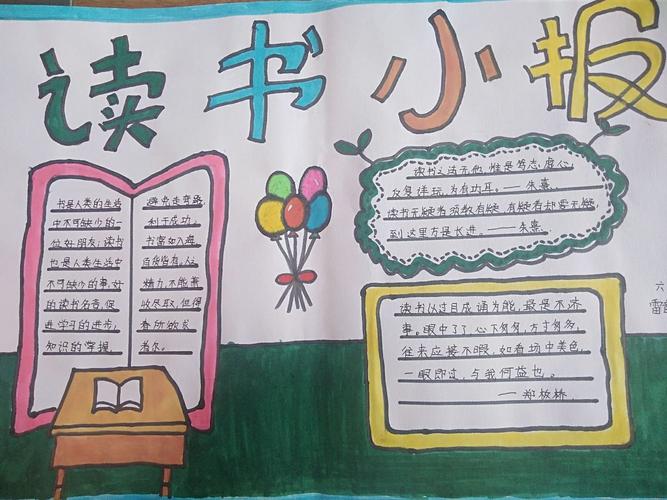 读书小报
书是人类的生活
中不可缺少的一
位好朋友，读书
也是人类生活中
不可缺少的事，好
的读书名言，促
进学习的进步，
知识的掌握，
避免走弯路，
利于成功。
书富如入海，
百货皆有。人之
精力，不能兼
收尽取，但得
春所欲求
者尔。
读书之法无他，惟是笃志虚心，
反复详玩，为有功耳。——朱熹
读书无疑者须教有疑，有疑者却要无疑，
到这里方是长进。——朱熹
读书以过目成诵为能，最是不济
事。眼中了了，心下匆匆，方寸无多，
往来应接不暇，如看场中美色，
一眼即过，与我何益也。
——郑板桥
六
雷